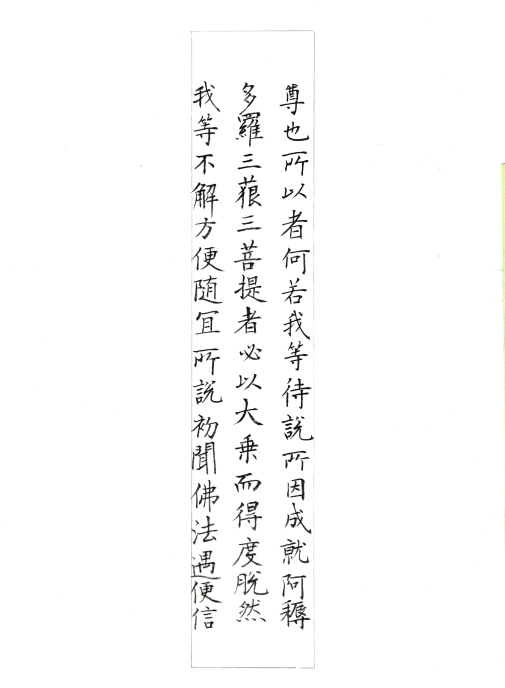 尊也所以者何若我等待說所因成就阿耨
多羅三藐三菩提者必以大乗而得度脫然
我等不解方便随冝所說初聞佛法遇便信